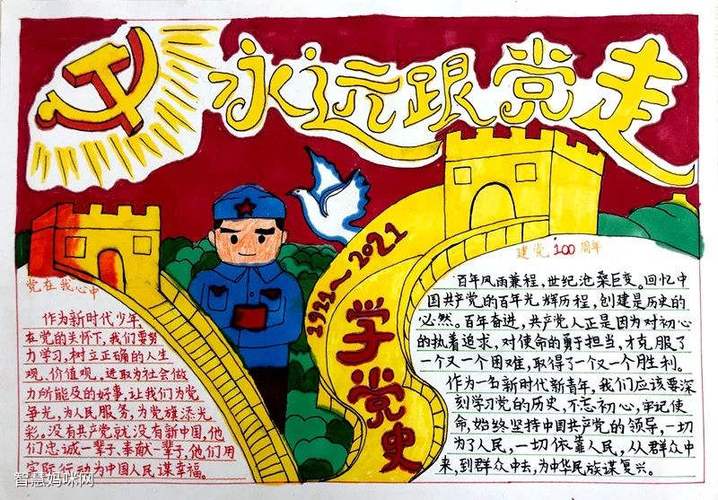 永远跟党走
党在我心中
作为新时代少年,
在党的关怀下,我们要努
力学习,树立正确的人生
观,价值观。进取为社会做
力所能及的好事,让我们为党
争光,为人民服务,为党旗添光
彩。没有共产党就没有新中国,他
们忠诚一辈子,奉献一辈子,他们用
实际行动为中国人民谋幸福。
1921~2021
学党史
建党100周年
百年风雨兼程,世纪沧桑巨变。回忆中
国共产党的百年光辉历程,创建是历史的
必然。百年奋进,共产党人正是因为对初心
的执着追求,对使命的勇于担当,才克服了
一个又一个困难,取得了一个又一个胜利。
作为一名新时代新青年,我们应该要深
刻学习党的历史,不忘初心,牢记使
命,始终坚持中国共产党的领导,一切
为了人民,一切依靠人民,从群众中
来,到群众中去,为中华民族谋复兴。
智慧妈咪网